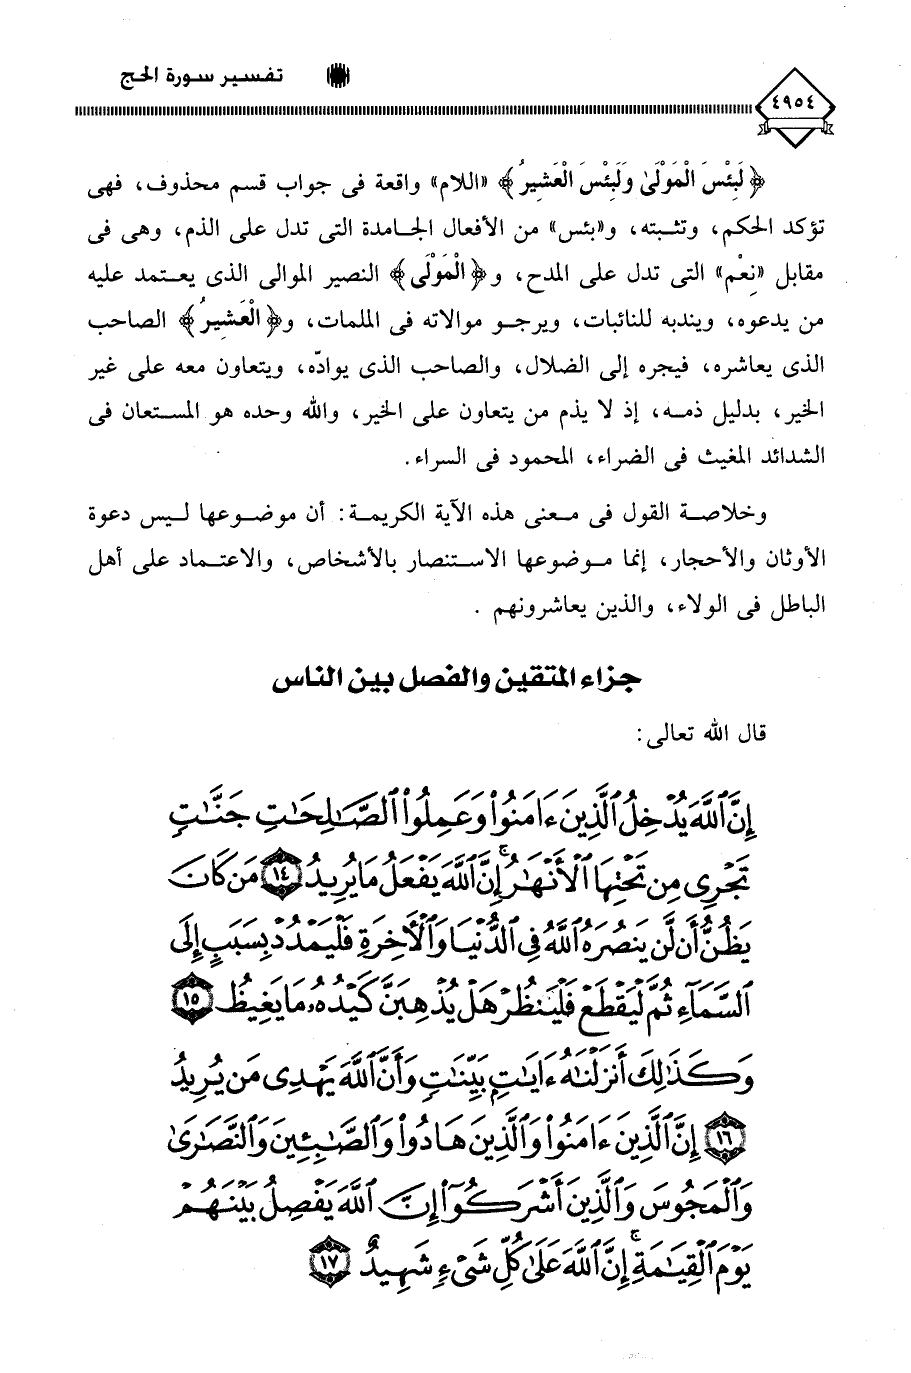 تفسير سورة الحج
٤٩٥٤
﴿لَبِئْسَ الْمَوْلَىٰ وَلَبِئْسَ الْعَشِيرُ﴾ «اللام» واقعة فى جواب قسم محذوف، فهى
تؤكد الحكم، وتثبته، و«بئس» من الأفعال الجامدة التى تدل على الذم، وهى فى
مقابل «نِعْم» التى تدل على المدح، و﴿الْمَوْلَى﴾ النصير الموالى الذى يعتمد عليه
من يدعوه، ويندبه للنائبات، ويرجو موالاته فى الملمات، و﴿الْعَشِيرُ﴾ الصاحب
الذى يعاشره، فيجره إلى الضلال، والصاحب الذى يوادّه، ويتعاون معه على غير
الخير، بدليل ذمه، إذ لا يذم من يتعاون على الخير، والله وحده هو المستعان فى
الشدائد المغيث فى الضراء، المحمود فى السراء.
وخلاصة القول فى معنى هذه الآية الكريمة: أن موضوعها ليس دعوة
الأوثان والأحجار، إنما موضوعها الاستنصار بالأشخاص، والاعتماد على أهل
الباطل فى الولاء، والذين يعاشرونهم .
جزاء المتقين والفصل بين الناس
قال الله تعالى:
إِنَّ ٱللَّهَ يُدْخِلُ ٱلَّذِينَ ءَامَنُوا۟ وَعَمِلُوا۟ ٱلصَّـٰلِحَـٰتِ جَنَّـٰتٍ
تَجْرِى مِن تَحْتِهَا ٱلْأَنْهَـٰرُ ۚ إِنَّ ٱللَّهَ يَفْعَلُ مَا يُرِيدُ ١٤ مَن كَانَ
يَظُنُّ أَن لَّن يَنصُرَهُ ٱللَّهُ فِى ٱلدُّنْيَا وَٱلْـَٔاخِرَةِ فَلْيَمْدُدْ بِسَبَبٍ إِلَى
ٱلسَّمَآءِ ثُمَّ لْيَقْطَعْ فَلْيَنظُرْ هَلْ يُذْهِبَنَّ كَيْدُهُۥ مَا يَغِيظُ ١٥
وَكَذَٰلِكَ أَنزَلْنَـٰهُ ءَايَـٰتٍۭ بَيِّنَـٰتٍ وَأَنَّ ٱللَّهَ يَهْدِى مَن يُرِيدُ
١٦ إِنَّ ٱلَّذِينَ ءَامَنُوا۟ وَٱلَّذِينَ هَادُوا۟ وَٱلصَّـٰبِـِٔينَ وَٱلنَّصَـٰرَىٰ
وَٱلْمَجُوسَ وَٱلَّذِينَ أَشْرَكُوٓا۟ إِنَّ ٱللَّهَ يَفْصِلُ بَيْنَهُمْ
يَوْمَ ٱلْقِيَـٰمَةِ ۚ إِنَّ ٱللَّهَ عَلَىٰ كُلِّ شَىْءٍ شَهِيدٌ ١٧